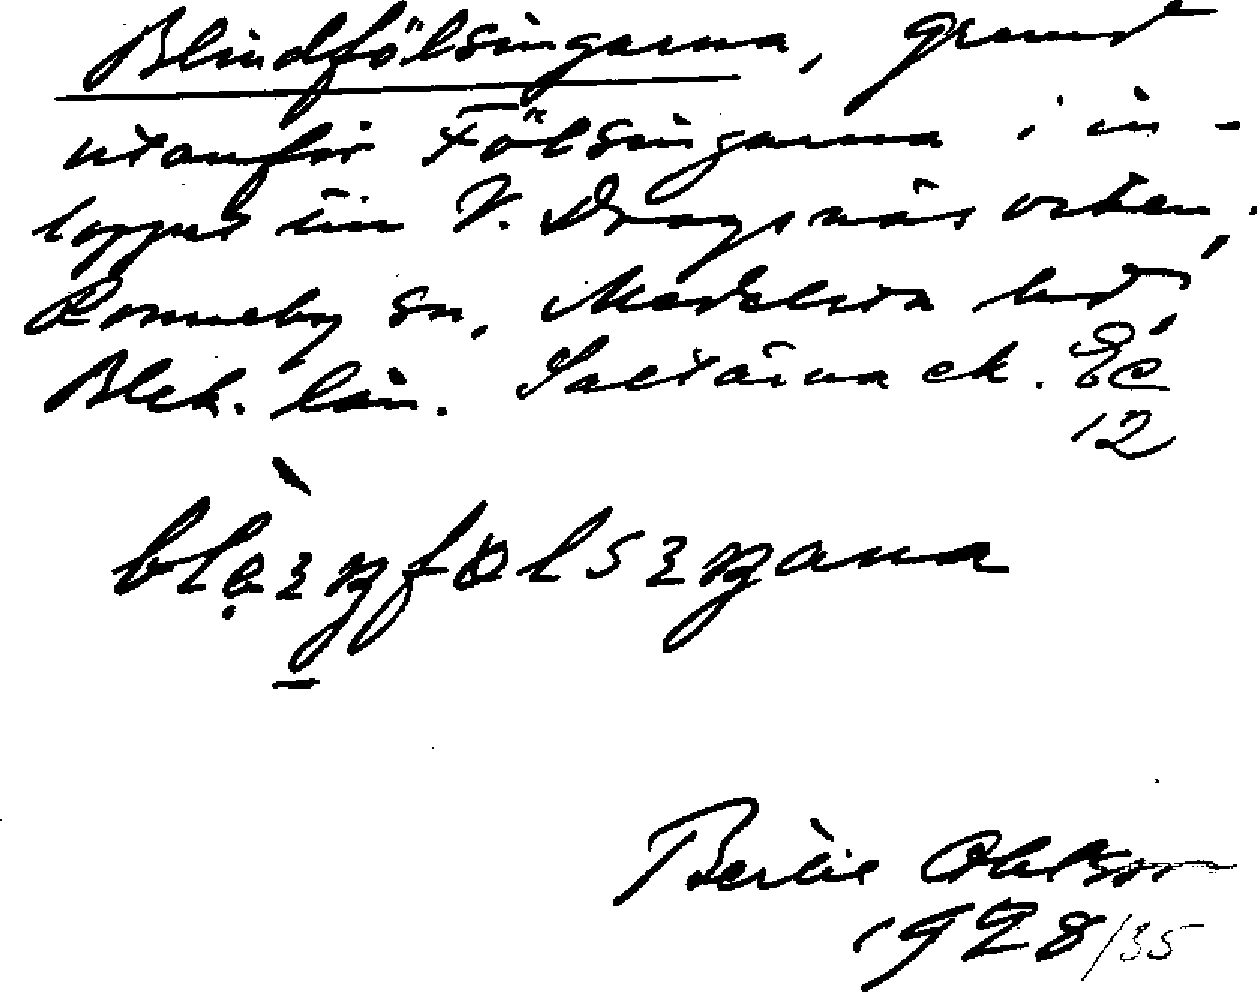 Blindfölsingarna, grund
utanför Fölsingarna i in-
loppet till V. Dragsnäsviken,
Ronneby sn, Medelsta hd,
Blek. län. Saltärna ek. Ec
12
Bertil Ohlson
1928/35